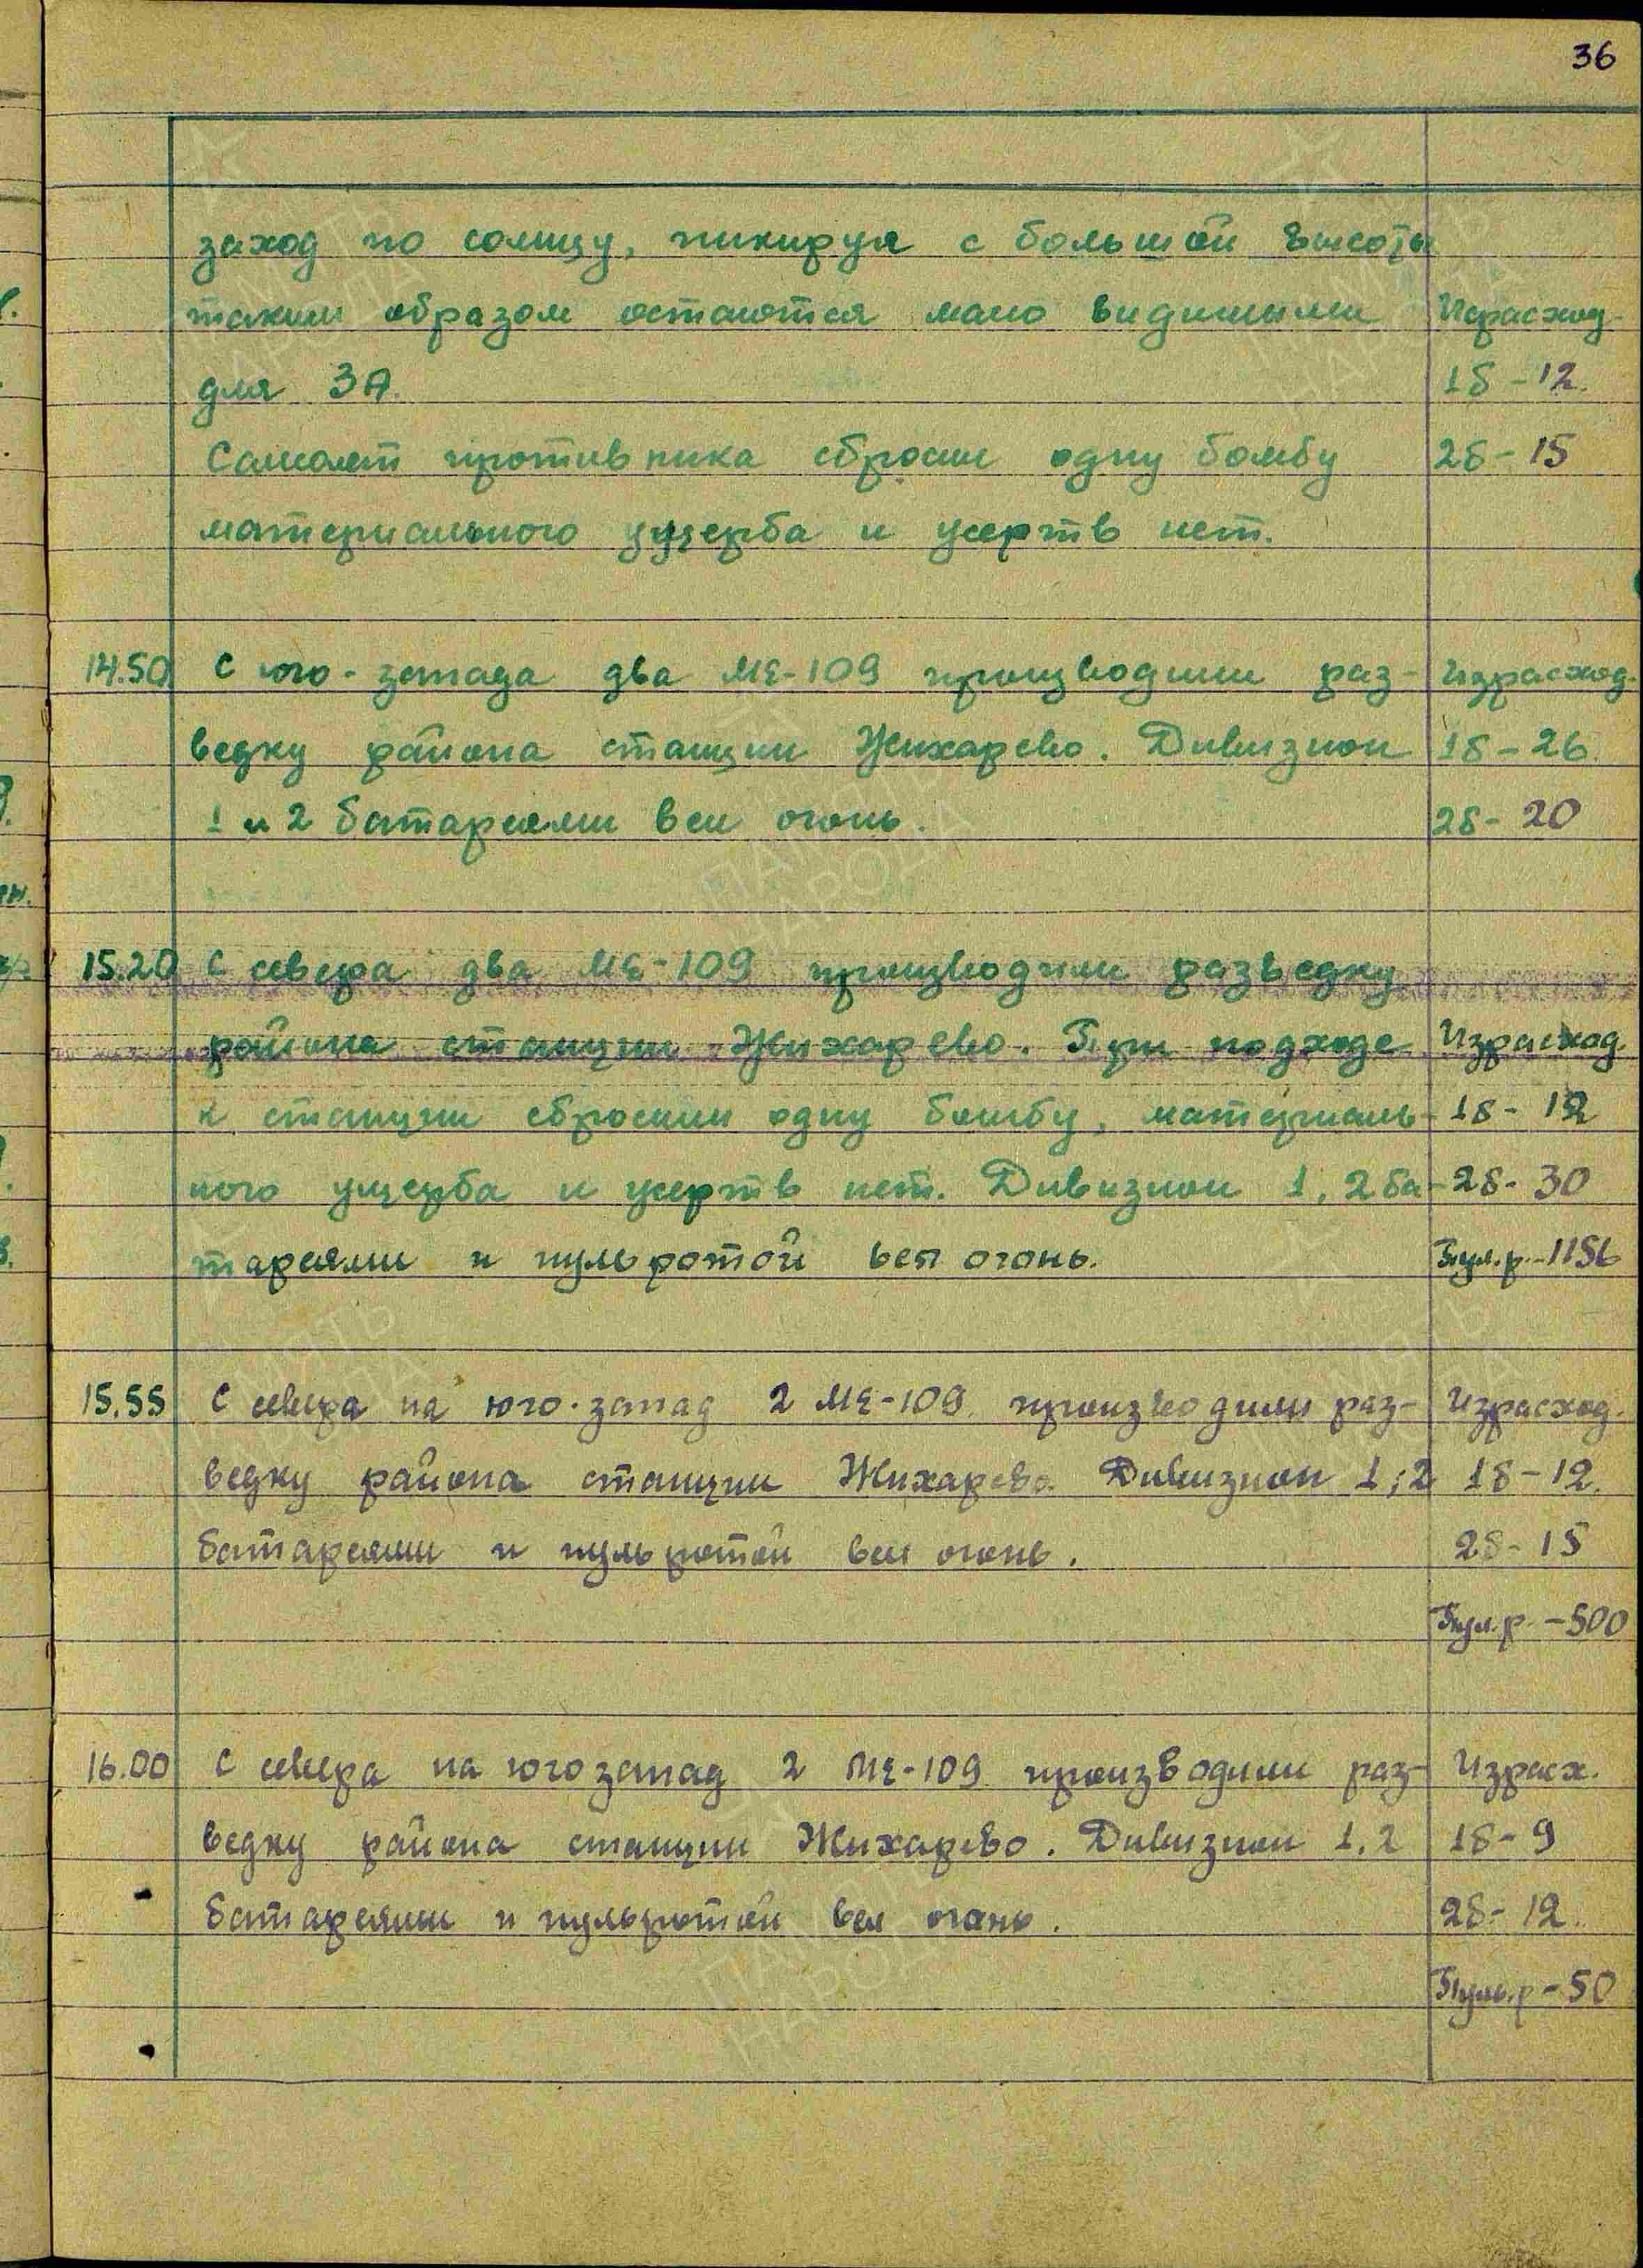 36
заход по солнцу, пикируя с большой высоты
таким образом остаются мало видимыми Израсход.
для ЗА. 1б - 12.
Самолет противника сбросил одну бомбу 2б - 15
материального ущерба и жертв нет.
14.50 С юго-запада два МЕ-109 производили раз- Израсход.
ведку района станции Жихарево. Дивизион 1б - 26.
1 и 2 батареями вел огонь. 2б - 20
15.20 С севера два МЕ-109 производили разведку
района станции Жихарево. При подходе Израсход.
к станции сбросили одну бомбу, материаль- 1б -
ного ущерба и жертв нет. Дивизион 1, 2 ба- 2б - 30
тареями и пульротой вел огонь. Пул.р. - 1156
15.55 С севера на юго-запад 2 МЕ-109 производили раз- Израсход.
ведку района станции Жихарево. Дивизион 1; 2 1б - 12.
батареями и пульротой вел огонь. 2б - 15
Пул.р. - 500
16.00 С севера на югозапад 2 МЕ-109 производили раз- Израсх.
ведку района станции Жихарево. Дивизион 1, 2 1б - 9
батареями и пульротой вел огонь. 2б - 12.
Пуль.р - 50
ПАМЯТЬ
НАРОДА